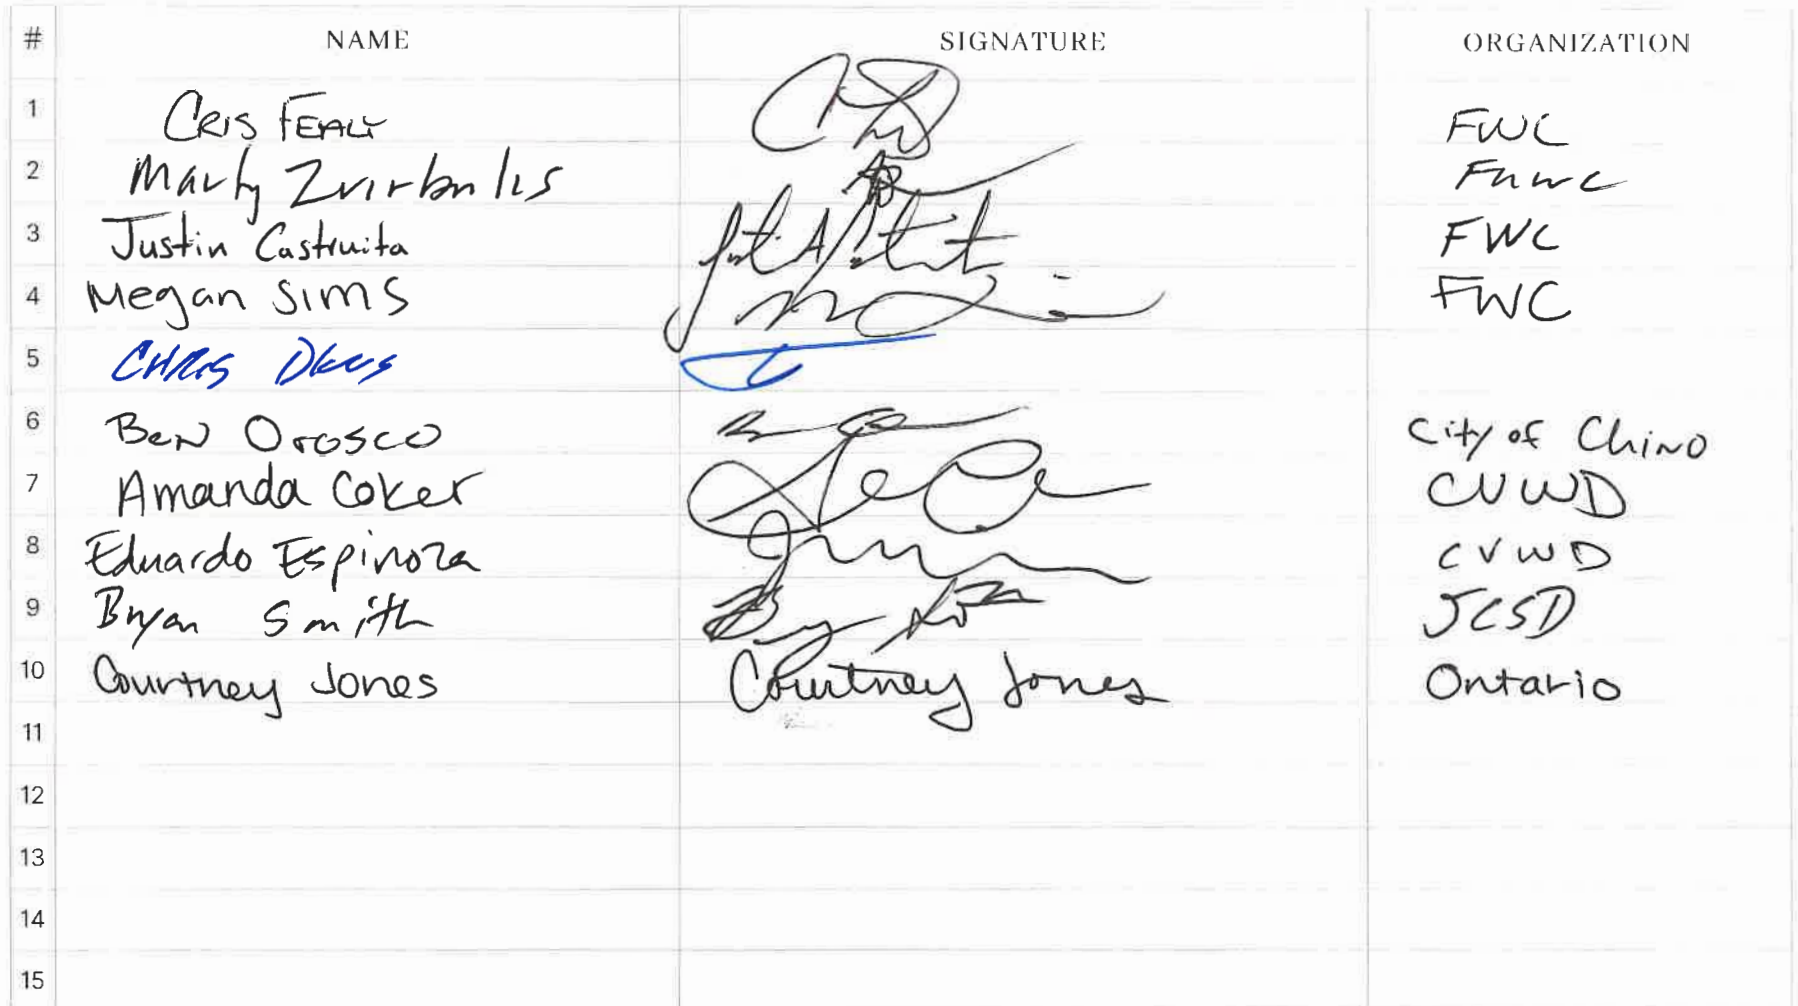 # NAME SIGNATURE ORGANIZATION
1 CRIS FEALY FWC
2 Marty Zvirbulis FWC
3 Justin Castruita FWC
4 Megan Sims FWC
5 CHRIS
6 Ben Orosco City of Chino
7 Amanda Coker CVWD
8 Eduardo Espinoza CVWD
9 Bryan Smith JCSD
10 Courtney Jones Courtney Jones Ontario
11
12
13
14
15